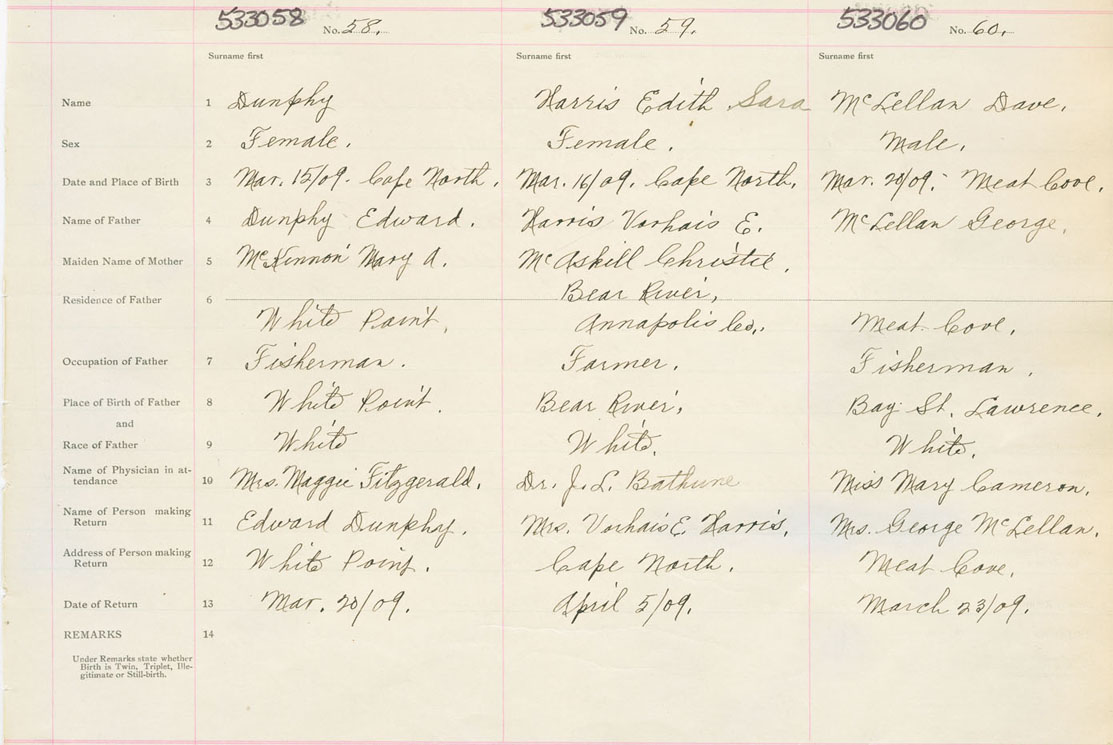 533058 No. 58. 533059 No. 59. 533060 No. 60.
Surname first Surname first Surname first
Name 1 Dunphy Harris Edith Sara McLellan Dave.
Sex 2 Female. Female. Male.
Date and Place of Birth 3 Mar. 15/09. Cape North. Mar. 16/09. Cape North. Mar. 20/09. Meat Cove.
Name of Father 4 Dunphy Edward. Harris Vorhais E. McLellan George.
Maiden Name of Mother 5 McKinnon Mary A. McAskill Christie.
Residence of Father 6 Bear River,
White Point. Annapolis Co. Meat Cove.
Occupation of Father 7 Fisherman. Farmer. Fisherman.
Place of Birth of Father 8 White Point. Bear River. Bay St. Lawrence.
and
Race of Father 9 White White. White.
Name of Physician in at-
tendance 10 Mrs. Maggie Fitzgerald. Dr. J. L. Bathune Miss Mary Cameron.
Name of Person making
Return 11 Edward Dunphy. Mrs. Vorhais E. Harris. Mrs. George McLellan.
Address of Person making
Return 12 White Point. Cape North. Meat Cove.
Date of Return 13 Mar. 20/09. April 5/09. March 23/09.
REMARKS 14
Under Remarks state whether
Birth is Twin, Triplet, Ille-
gitimate or Still-birth.